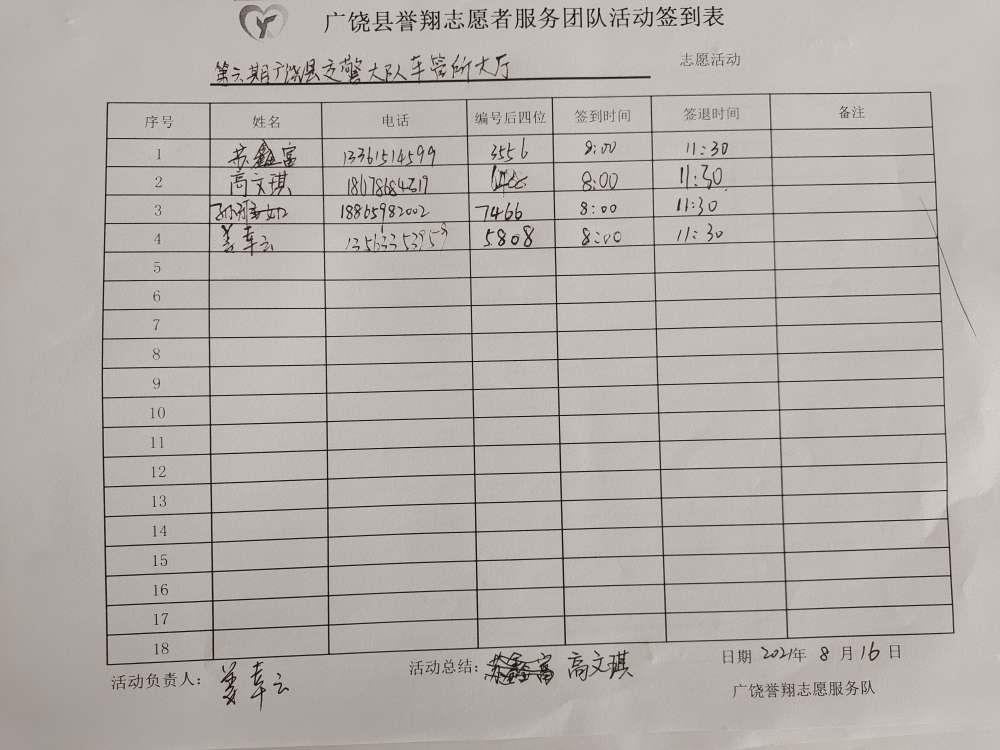 广饶县誉翔志愿者服务团队活动签到表
第六期广饶县交警大队车管所大厅 志愿活动
序号 姓名 电话 编号后四位 签到时间 签退时间 备注
1 苏鑫富 13361514599 3556 8:00 11:30
2 高文琪 8:00 11:30
3 18865982002 7466 8:00 11:30
4 姜春云 5808 8:00 11:30
5
6
7
8
9
10
11
12
13
14
15
16
17
18
活动负责人: 姜春云 活动总结: 高文琪 日期 2021年 8 月 16 日
广饶誉翔志愿服务队